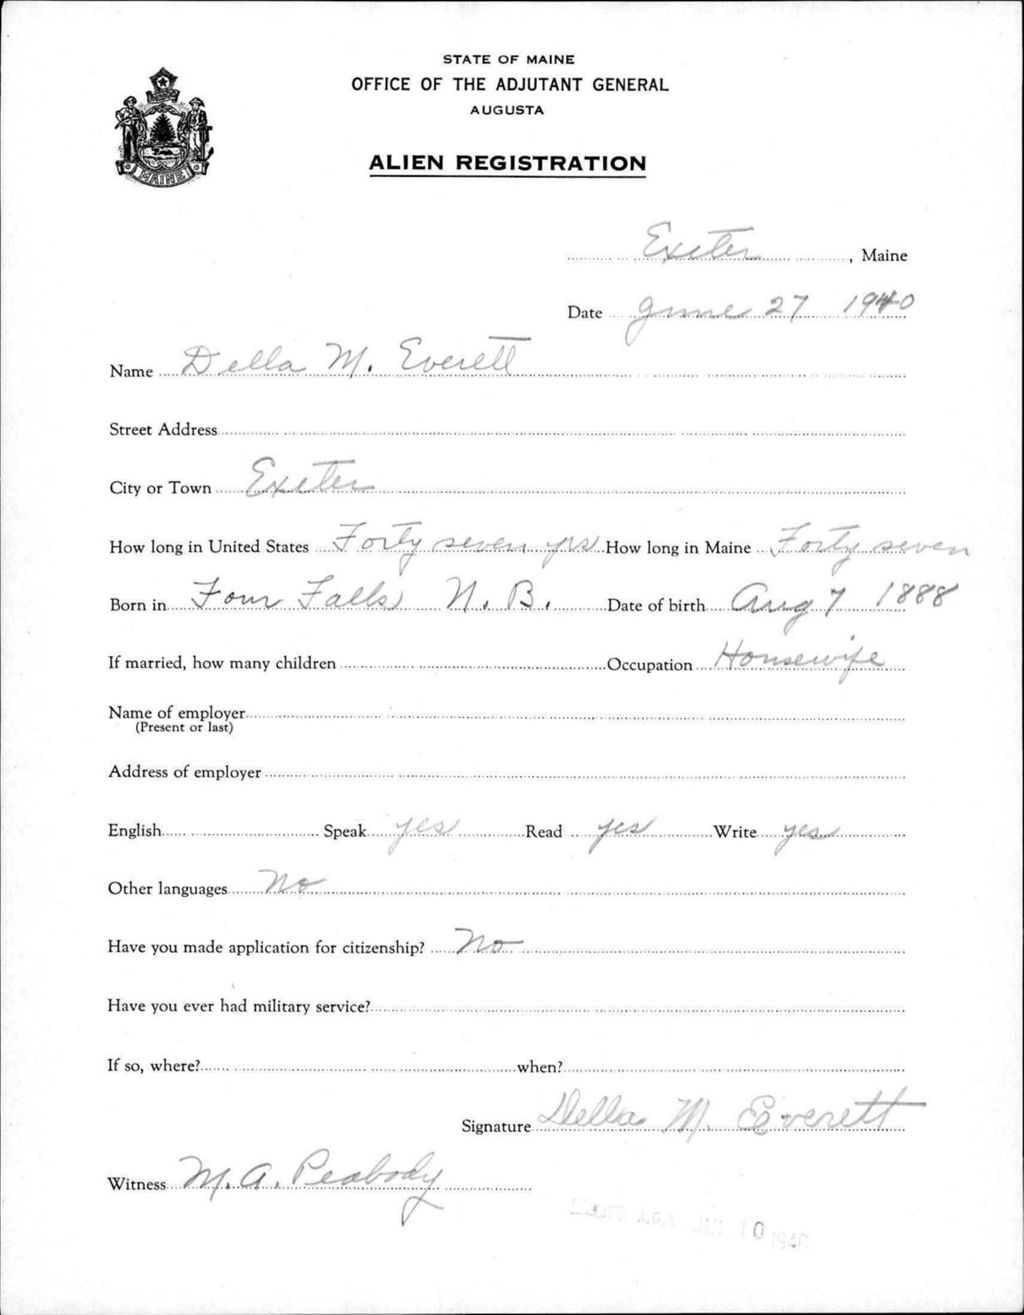 STATE OF MAINE
OFFICE OF THE ADJUTANT GENERAL
AUGUSTA
MAINE
ALIEN REGISTRATION
Exeter, Maine
Date June 27 1940
Name Della M. Everett
Street Address
City or Town Exeter
How long in United States Forty seven yrs How long in Maine Forty seven
Born in Four Falls N. B. Date of birth Aug 7 1888
If married, how many children Occupation Housewife
Name of employer
(Present or last)
Address of employer
English Speak yes Read yes Write yes
Other languages No
Have you made application for citizenship? No
Have you ever had military service?
If so, where? when?
Signature Della M. Everett
Witness M. A. Peabody